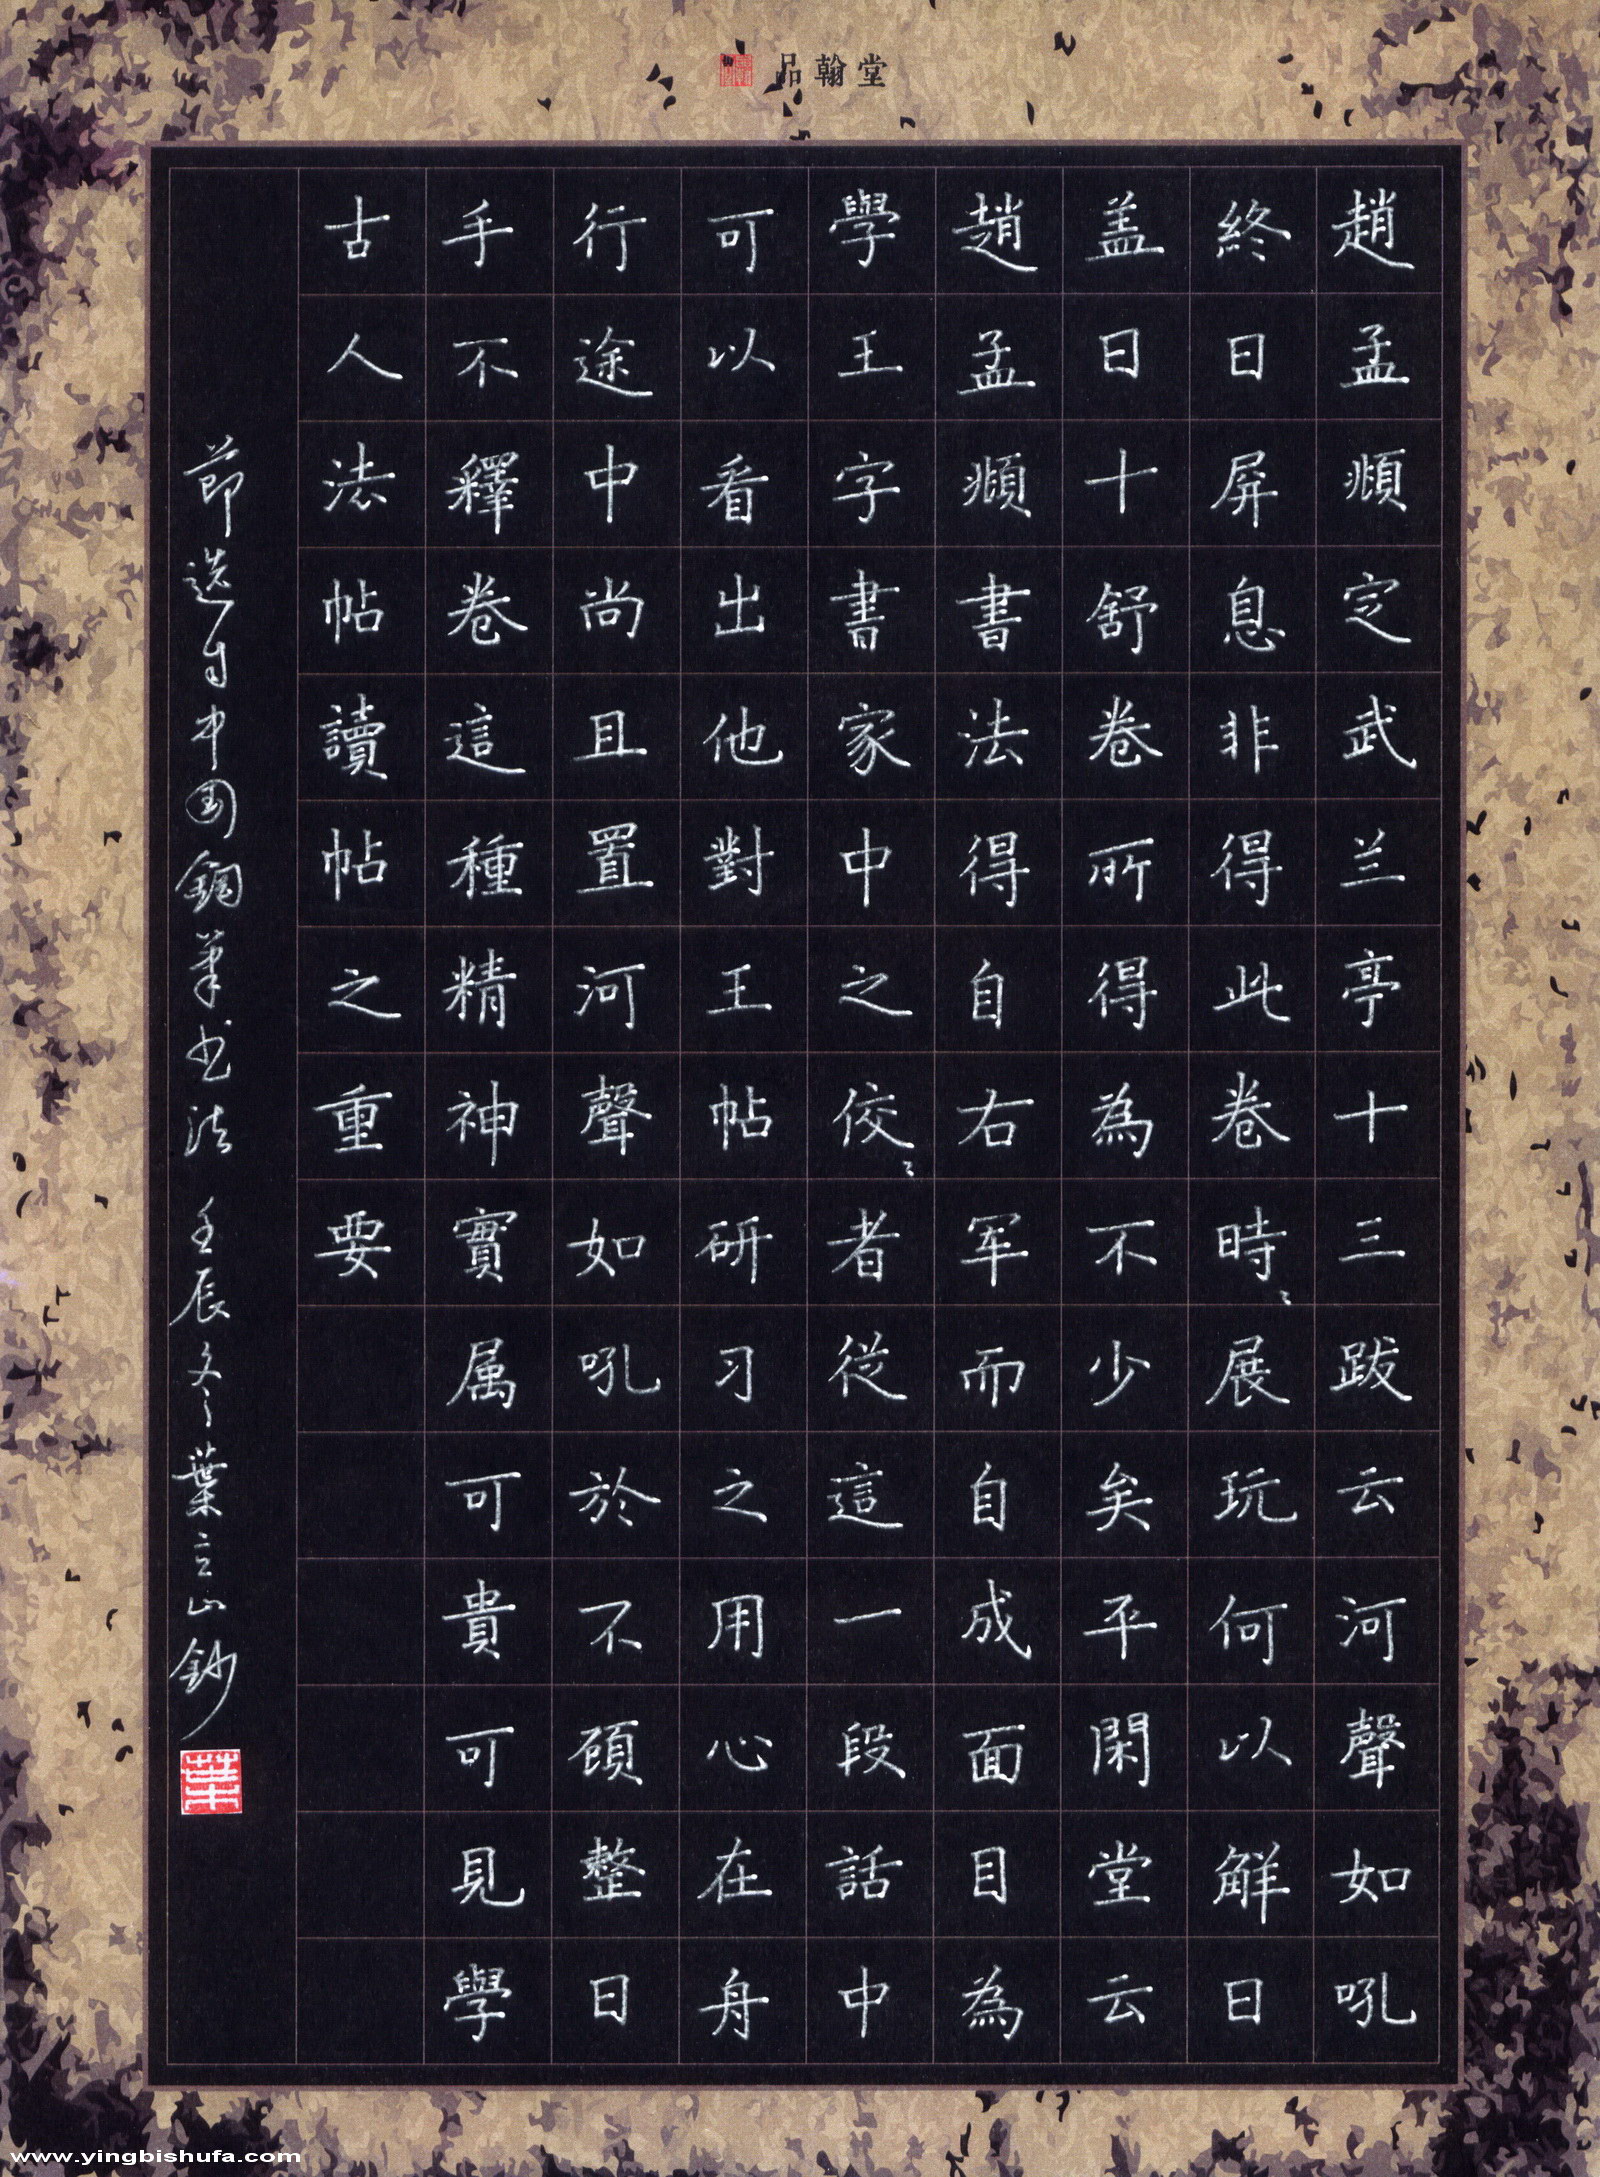 品翰堂
趙孟頫定武兰亭十三跋云河聲如吼
終日屏息非得此卷時〻展玩何以解日
盖日十舒卷所得為不少矣平閑堂云
趙孟頫書法得自右军而自成面目為
學王字書家中之佼〻者從這一段話中
可以看出他對王帖研习之用心在舟
行途中尚且置河聲如吼於不顧整日
手不釋卷這種精神實属可貴可見學
古人法帖讀帖之重要
節选自中国鋼筆书法 壬辰冬葉立山鈔
葉
www.yingbishufa.com